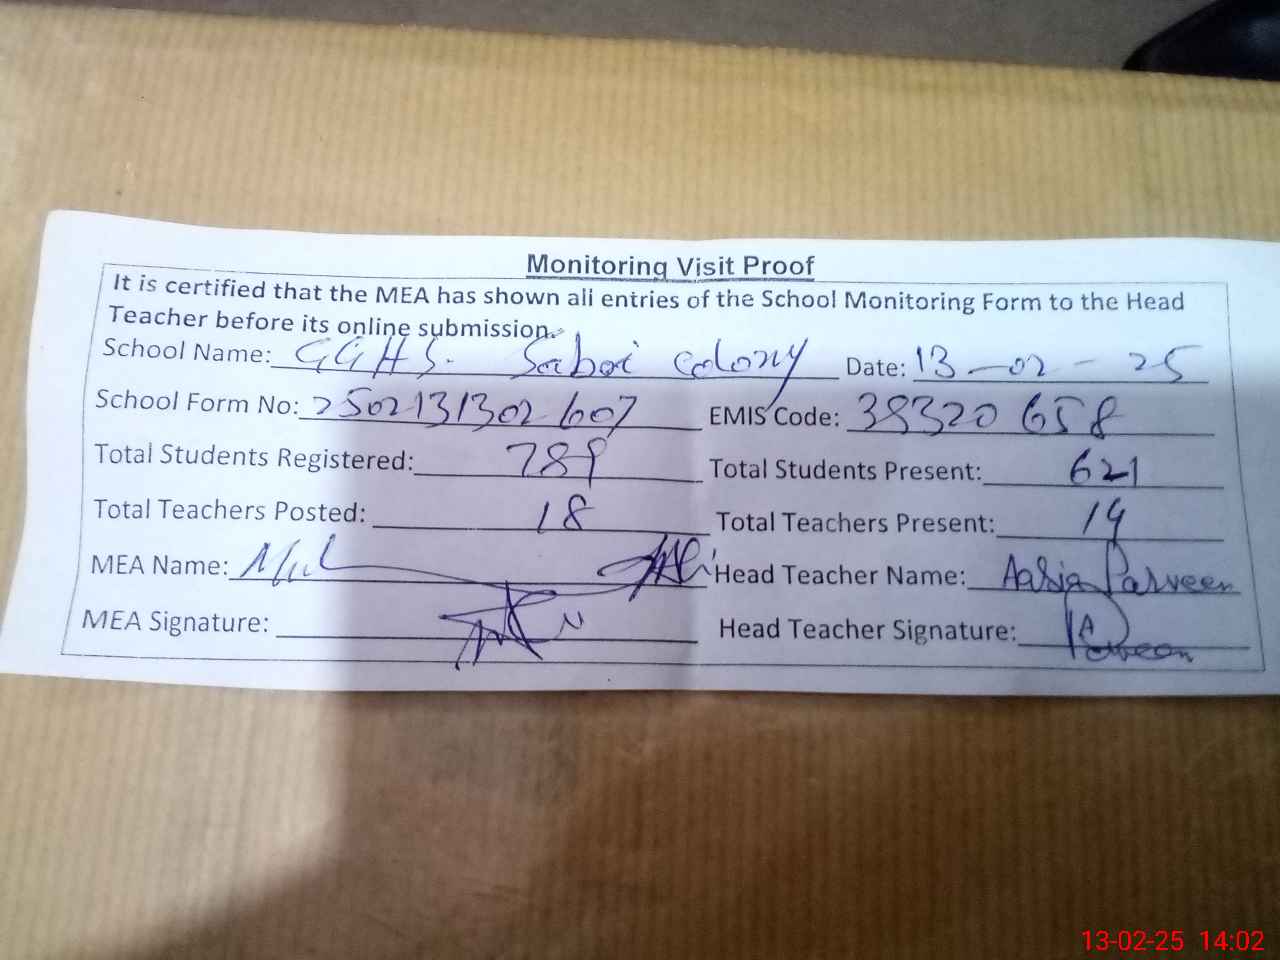 Monitoring Visit Proof
It is certified that the MEA has shown all entries of the School Monitoring Form to the Head
Teacher before its online submission.
School Name: GGHS. Colony Date: 13-02-25
School Form No: 2502131302607 EMIS Code: 38320658
Total Students Registered: 789 Total Students Present: 621
Total Teachers Posted: 18 Total Teachers Present: 14
MEA Name: Ali Head Teacher Name: Aasia Parveen
MEA Signature: Head Teacher Signature: Parveen
13-02-25 14:02